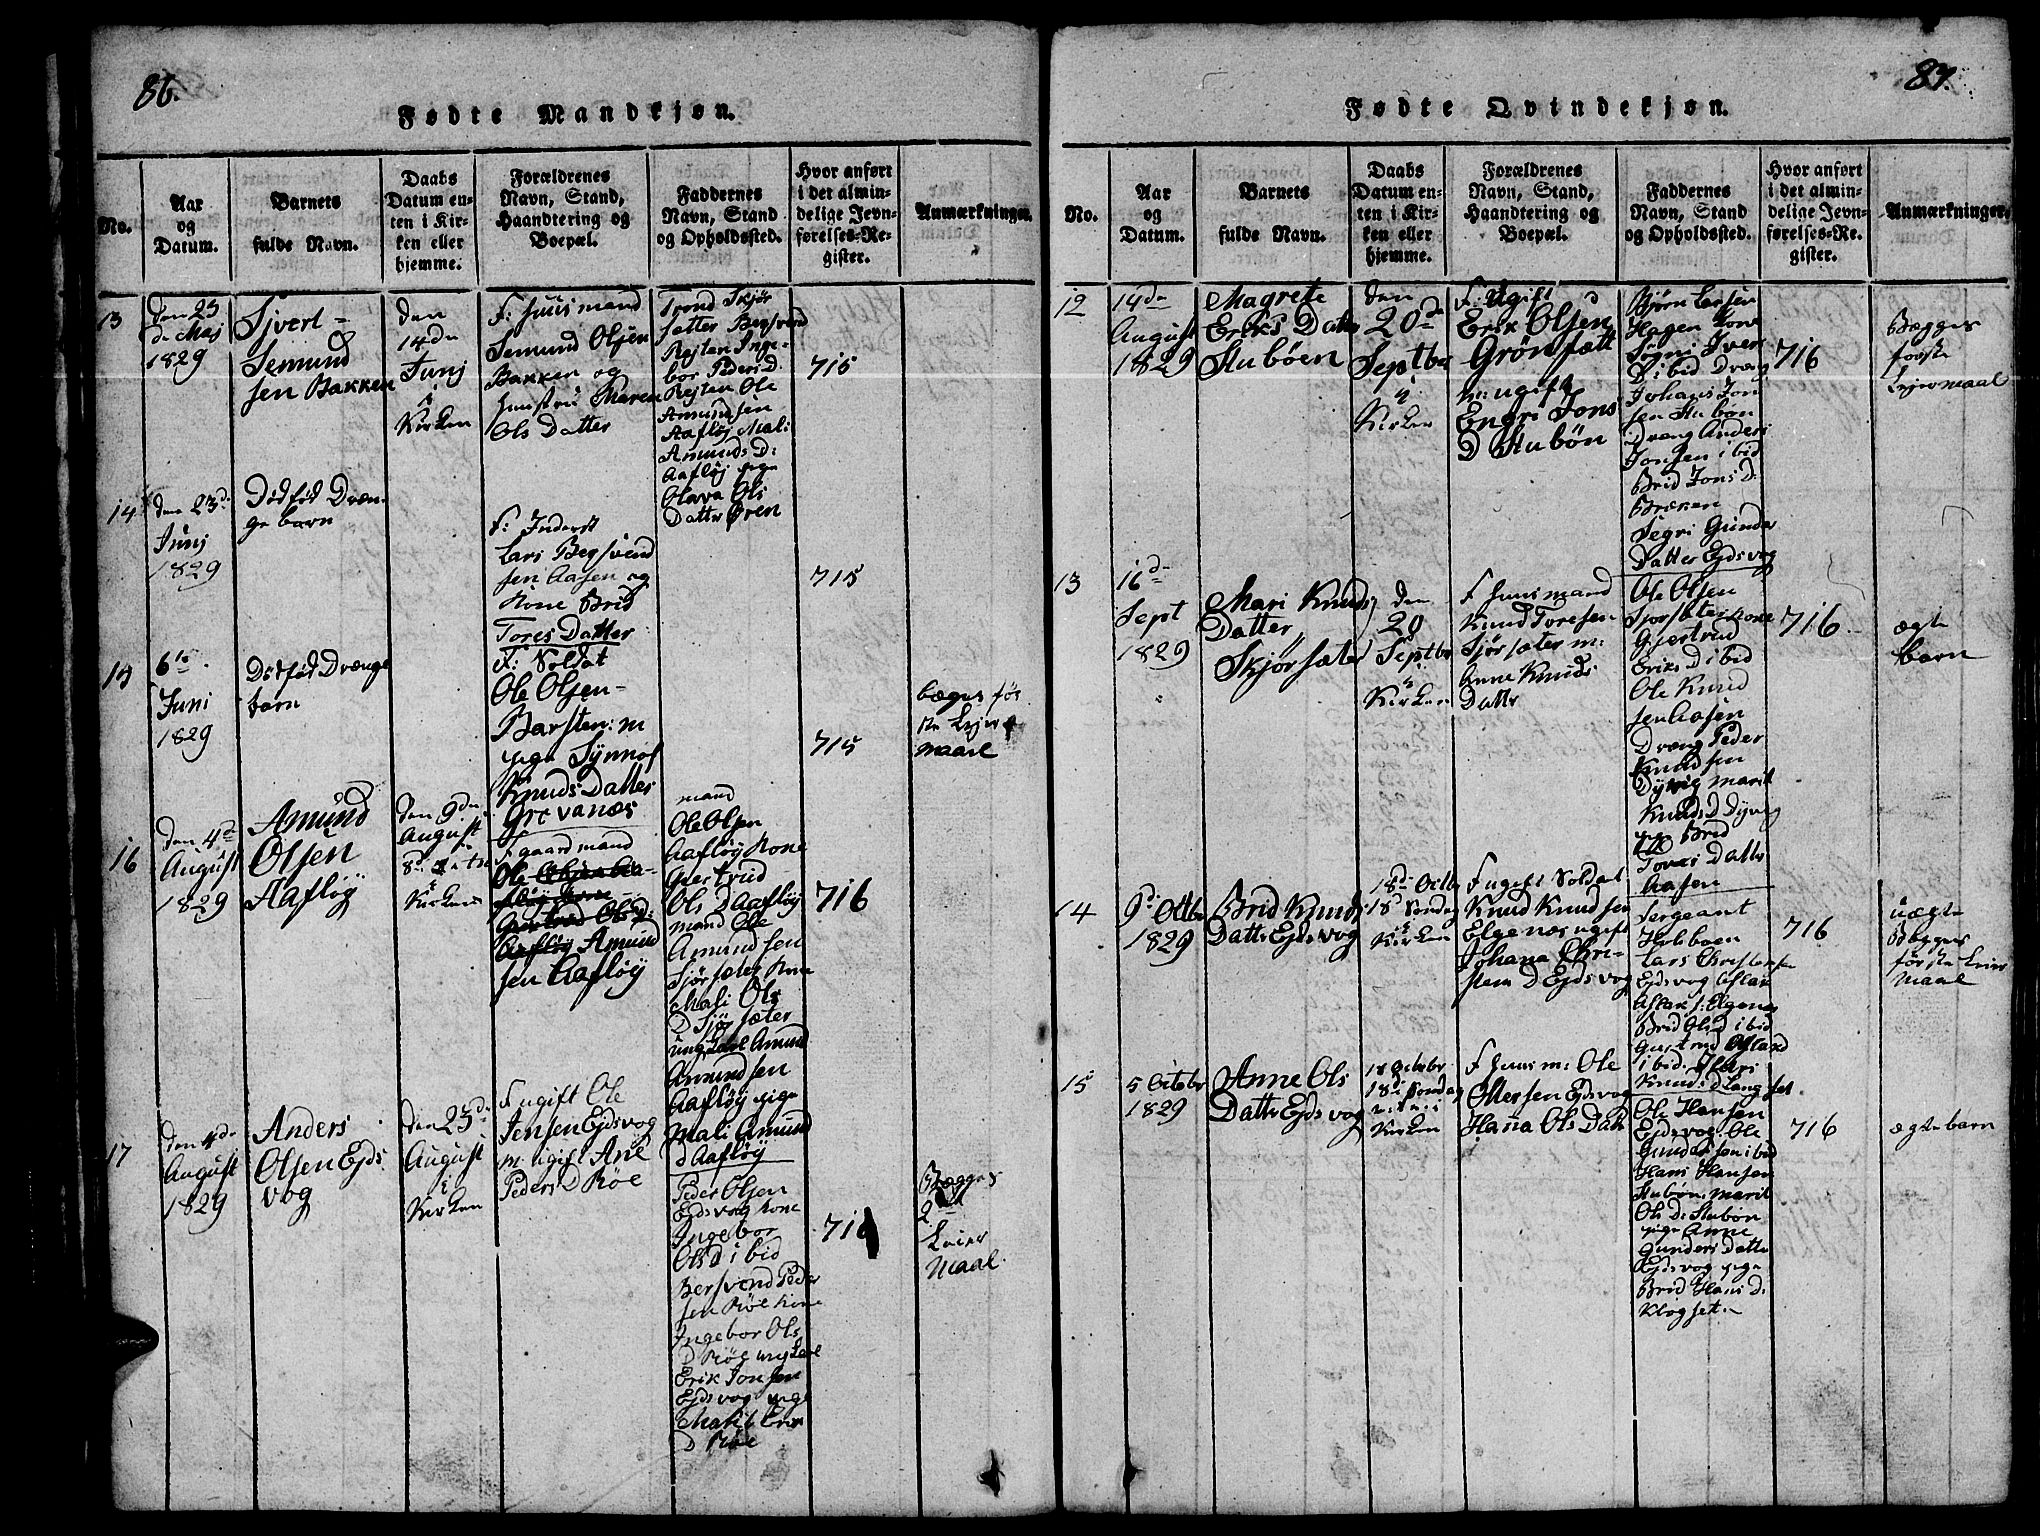 86.
Fødte Mandkjøn.
No.
Aar
og
Datum.
Barnets
fulde Navn.
Daabs
Datum en-
ten i Kir-
ken eller
hjemme.
Forældrenes
Navn, Stand,
Haandtering og
Boepæl.
Faddernes
Navn, Stand
og Opholdssted.
Hvor anført
i det almin-
delige Jevn-
førelses-Re-
gister.
Anmærkninger.
13
den 25
de Maj
1829
Sjvert
Semund
sen Bakken
den
14de
Junj
i
Kirken
F: Huusmand
Semund Olsen
Bakken og
Hustrue Maren
Ols Datter
Trond Skjør
sætter Begsvend
Rejten Inge-
bor Peders D.
Rejten Ole
Amundsen
Aafløj Mali
Amunds D:
Aafløj pige
Olava Ols
Datter Øren
715
14
den 23d
Junj
1829
Dødfød Dræn-
ge barn
F: Inderst
Lars Begsvend
sen Aasen og
Kone Brid
Tores Datter
715
15
6te
Juni
1829
Dødfød Drænge
barn
F: Soldat
Ole Olsen
Barsten: m
pige Synnof
Knuds Datter
Grevanæs
715
bæges før
ste Lejer
maal
16
den 4de
August
1829
Amund
Olsen
Aafløÿ
den 9de
August
8de
Kirken
F gaardmand
Ole Olsen Aa-
fløj Kone
Giertrud Ols D:
Aafløj Amund
sen Aafløÿ
mand
Ole Olsen
Aafløj Kone
Giertrud
Ols D Aafløj
mand Ole
Amundsen
Sjørsæter Kone
Mali Ols
D Sjørsæter
ungkarl Amund
Amundsen
Aafløj pige
Mali Amund
d Aafløj
716
17
den 4de
August
1829
Anders
Olsen Ejds
vog
den 23de
August
i
Kirken
F ugift Ole
Jensen Ejdsvog
m: ugift Ane
Peders D Røe
Peder Olsen
Ejdsvog Kone
Ingebor
Ols D i bid
Bersvend Peder
sen Røe Kone
Ingebor Ols
D Røe ungkarl
Erik Jonsen
Ejdsvog pige
D Røe
716
Begges
2
Leier
maal
87.
Fødte Qvindekjøn.
No.
Aar
og
Datum.
Barnets
fulde Navn.
Daabs
Datum en-
ten i Kir-
ken eller
hjemme.
Forældrenes
Navn, Stand,
Haandtering og
Boepæl.
Faddernes
Navn, Stand
og Opholdssted.
Hvor anført
i det almin-
delige Jevn-
førelses-Re-
gister.
Anmærkninger.
12
14de
August
1829
Magrete
Eriks Datter
Stubøen
den
20de
Septbr
i
Kirken
F: Ugift
Erik Olsen
Grønsætt
m: ugift
Engri Jons
D Stubøn
Bjørn Larsen
Hagen Kone
Segri Iver
D i bid Dreng
Johans Jon
sen Stubøn
Dræng Anders
Jonsen i bid
Brid Jons D:
Brekken
Segri Gunder
Datter Ejdsvog
716
Begges
første
Lejermaal
13
16de
Sept
1829
Mari Knuds
Datter
Skjørsæter
den
20
Septbr
i
Kirken
F Huusmand
Knud Toresen
Sjørsæter m:
Anne Knuds
Datter
Ole Olsen
Sjørsæter Kone
Gjertrud
Eriks D i bid
Ole Knud
sen Aasen
Dræng Peder
Knudsen
Dyvig Marit
Knuds D Dyvig
pige Brid
Tores Datter
Aasen
716
ægte
barn
14
9de Octbr
1829
Brid Knuds
Datter Ejdsvog
18de Octbr
18de Søndag
i
Kirken
F ugift Soldat
Knud Knudsen
Elgenæs ugift
Johana Chri-
stens D Ejdsvog
Sergeant
Holeboen
Lars Christensen
Ejdsvog Aslak
Aslaks: Elgenæs
Brid Ols D i bid
i bid
Knuds D Langset
716
uægte
begges
første Leier
maal
15
5 Octobr
1829
Anne Ols
Datter Ejdsvog
18 Octobr
18de Søndag
i
Kirken
F Huusm: Ole
Olersen Ejdsvog
Hana Ols Datr
Ole Hansen
Ejdsvog Ole
Gundersen i bid
Hans Hansen
Stubøn Marit
Ols D: Stubøn
pige Anne
Gunders Datter
Ejdsvog pige
Brid Hans D:
Klogset
716
ægte barn